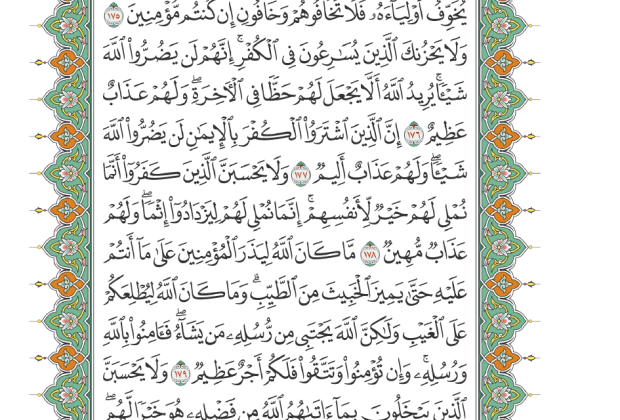 يُخَوِّفُ أَوْلِيَآءَهُۥ فَلَا تَخَافُوهُمْ وَخَافُونِ إِن كُنتُم مُّؤْمِنِينَ ١٧٥
وَلَا يَحْزُنكَ ٱلَّذِينَ يُسَـٰرِعُونَ فِى ٱلْكُفْرِ ۚ إِنَّهُمْ لَن يَضُرُّوا۟ ٱللَّهَ
شَيْـًٔا ۗ يُرِيدُ ٱللَّهُ أَلَّا يَجْعَلَ لَهُمْ حَظًّا فِى ٱلْـَٔاخِرَةِ ۖ وَلَهُمْ عَذَابٌ
عَظِيمٌ ١٧٦ إِنَّ ٱلَّذِينَ ٱشْتَرَوُا۟ ٱلْكُفْرَ بِٱلْإِيمَـٰنِ لَن يَضُرُّوا۟ ٱللَّهَ
شَيْـًٔا ۖ وَلَهُمْ عَذَابٌ أَلِيمٌ ١٧٧ وَلَا يَحْسَبَنَّ ٱلَّذِينَ كَفَرُوٓا۟ أَنَّمَا
نُمْلِى لَهُمْ خَيْرٌ لِّأَنفُسِهِمْ ۚ إِنَّمَا نُمْلِى لَهُمْ لِيَزْدَادُوٓا۟ إِثْمًا ۖ وَلَهُمْ
عَذَابٌ مُّهِينٌ ١٧٨ مَّا كَانَ ٱللَّهُ لِيَذَرَ ٱلْمُؤْمِنِينَ عَلَىٰ مَآ أَنتُمْ
عَلَيْهِ حَتَّىٰ يَمِيزَ ٱلْخَبِيثَ مِنَ ٱلطَّيِّبِ ۗ وَمَا كَانَ ٱللَّهُ لِيُطْلِعَكُمْ
عَلَى ٱلْغَيْبِ وَلَـٰكِنَّ ٱللَّهَ يَجْتَبِى مِن رُّسُلِهِۦ مَن يَشَآءُ ۖ فَـَٔامِنُوا۟ بِٱللَّهِ
وَرُسُلِهِۦ ۚ وَإِن تُؤْمِنُوا۟ وَتَتَّقُوا۟ فَلَكُمْ أَجْرٌ عَظِيمٌ ١٧٩ وَلَا يَحْسَبَنَّ
ٱلَّذِينَ يَبْخَلُونَ بِمَآ ءَاتَىٰهُمُ ٱللَّهُ مِن فَضْلِهِۦ هُوَ خَيْرًا لَّهُم ۖ